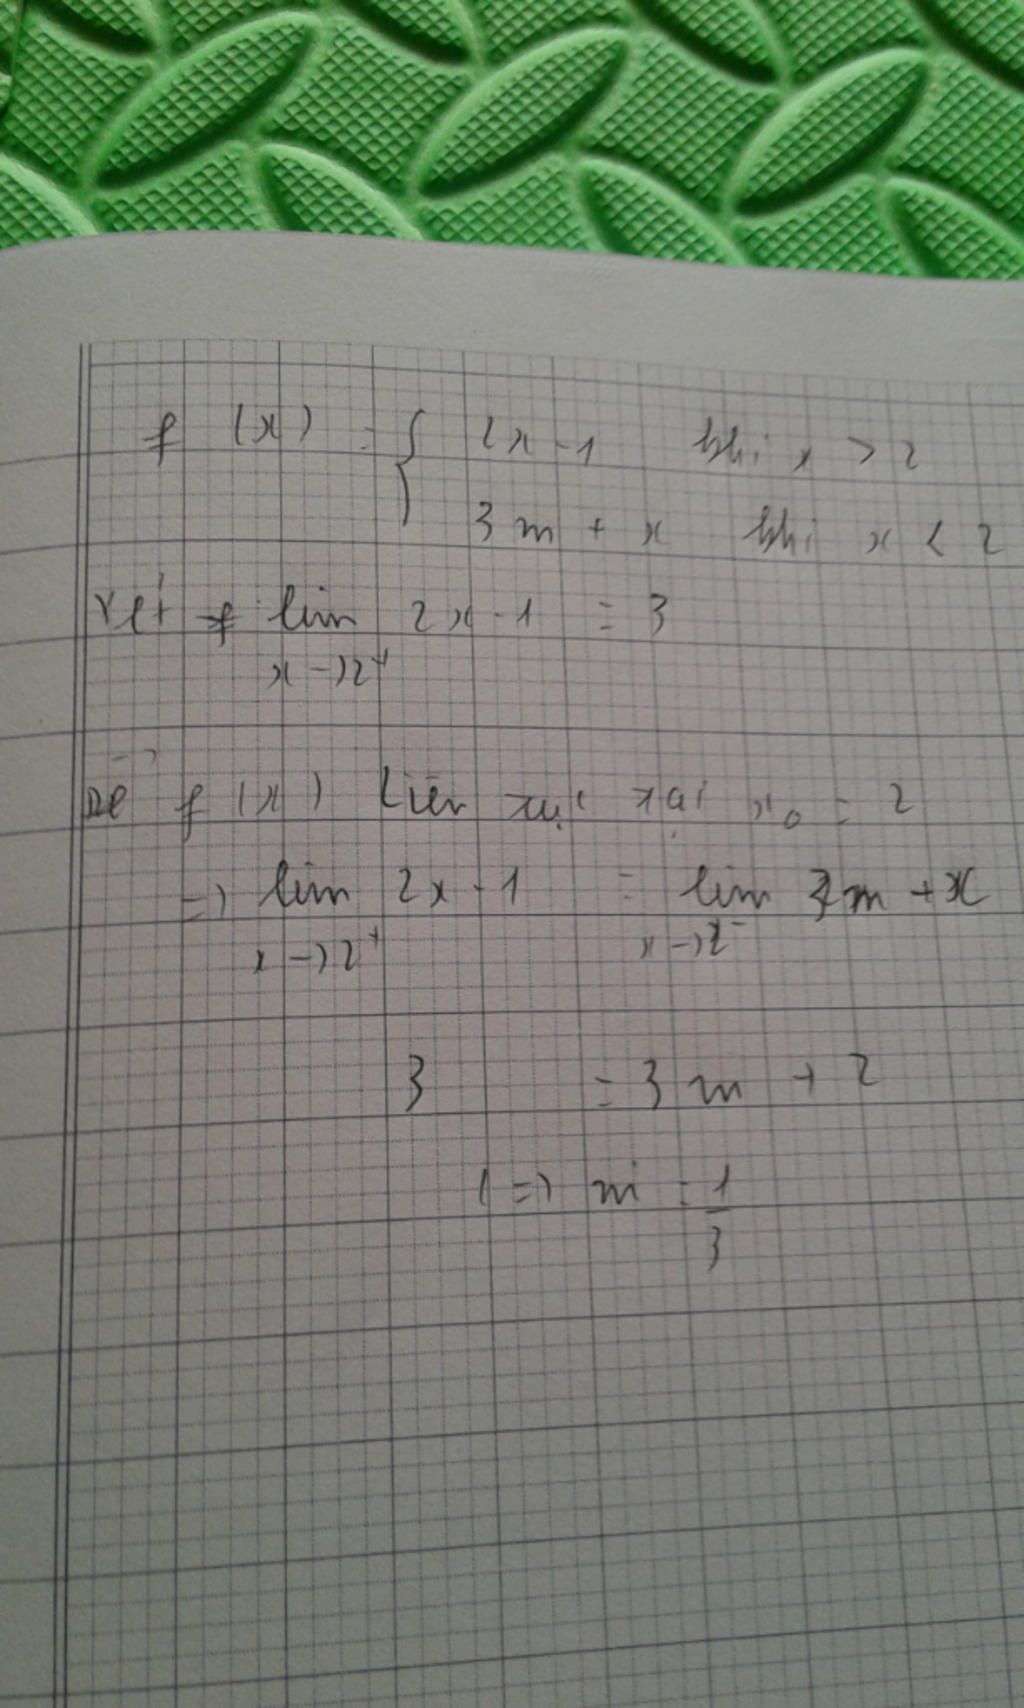 f (x) = { 2x - 1 khi x > 2
3m + x khi x < 2
xét lim 2x - 1 = 3
x -> 2⁺
Để f (x) liên tục tại x₀ = 2
=> lim 2x - 1 = lim 3m + x
x -> 2⁺ x -> 2⁻
3 = 3m + 2
<=> m = 1/3